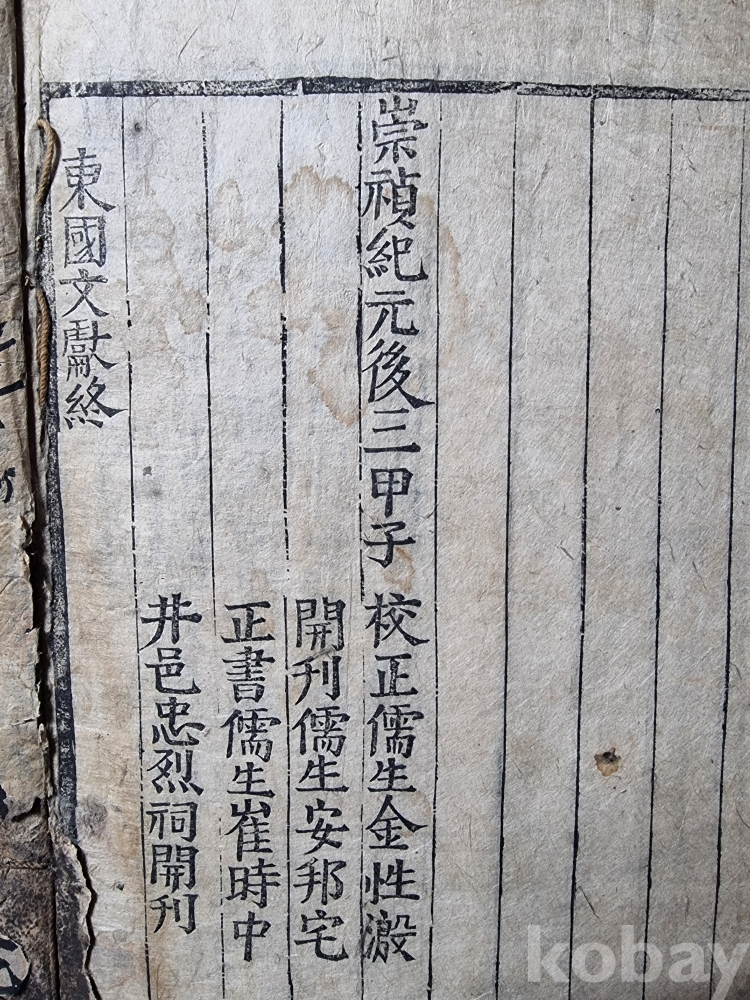 崇禎紀元後三甲子 校正儒生金性溵
開刊儒生安邦宅
正書儒生崔時中
井邑忠烈祠開刊
東國文獻終
kobay